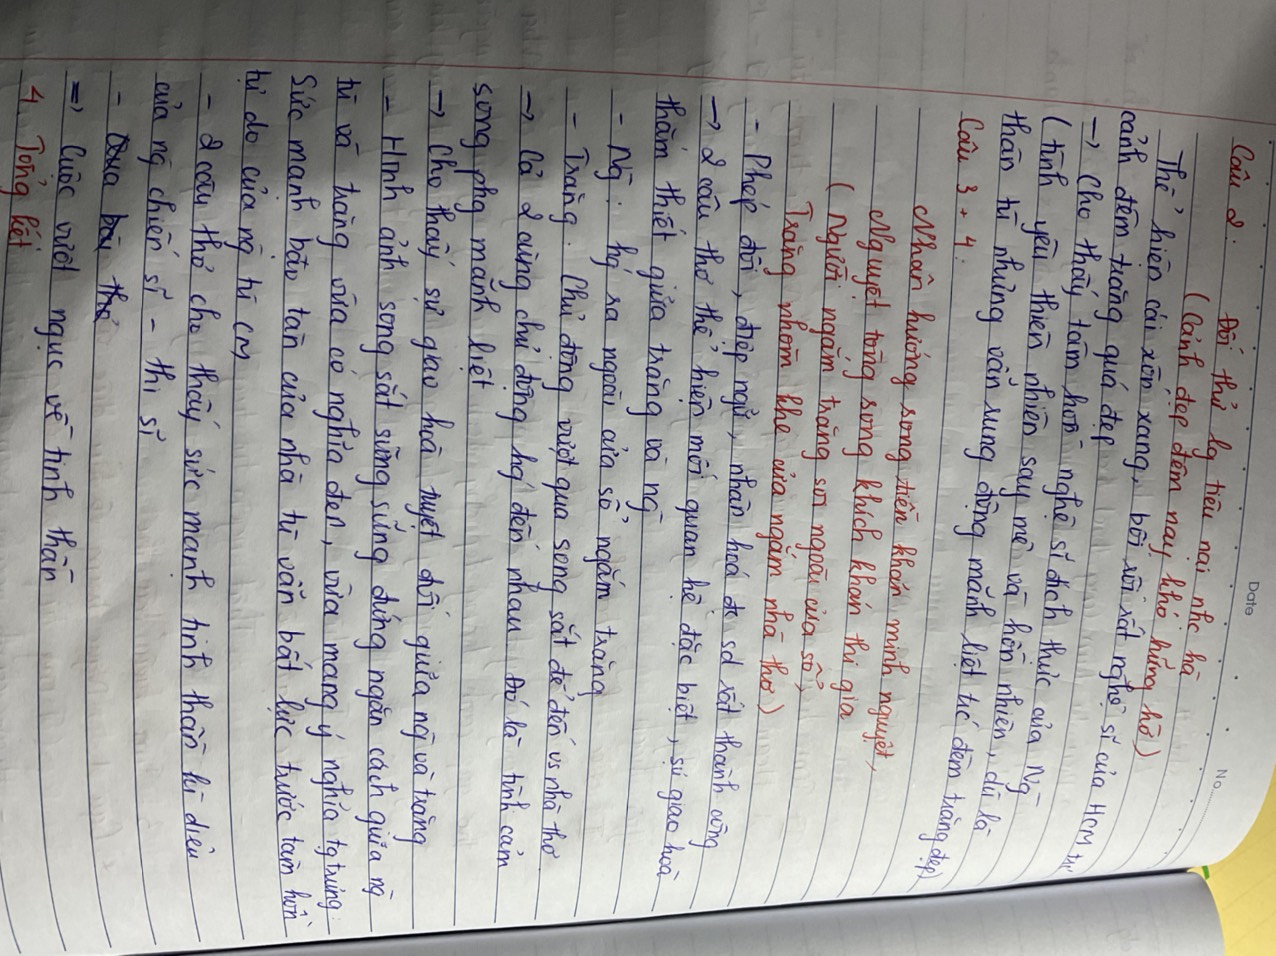 Date
No.
Câu 2: Đối thử lg tiêu nại nhc hà
(Cảnh đẹp đêm nay khó hững hờ)
Thể hiện cái xốn xang, bối rối rất nghệ sĩ của HCM trc
cảnh đêm trăng quá đẹp
→ Cho thấy tâm hồn nghệ sĩ đích thực của Ng
(tình yêu thiên nhiên say mê và hồn nhiên, dù là
thân tù nhưng vẫn rung động mãnh liệt trc đêm trăng đẹp)
Câu 3 + 4:
Nhân hướng song tiền khán minh nguyệt,
Nguyệt tòng song khích khán thi gia
(Người ngắm trăng soi ngoài cửa sổ,
Trăng nhòm khe cửa ngắm nhà thơ)
- Phép đối, điệp ngữ, nhân hoá đc sd rất thành công
→ 2 câu thơ thể hiện mối quan hệ đặc biệt, sự giao hoà
thắm thiết giữa trăng và ng
- Ng: hg ra ngoài cửa sổ ngắm trăng
- Trăng: Chủ động vượt qua song sắt để đến vs nhà thơ
→ Cả 2 cùng chủ động hg đến nhau. Đó là tình cảm
song phg mãnh liệt
→ Cho thấy sự giao hoà tuyệt đối giữa ng và trăng
- Hình ảnh song sắt sừng sững đứng ngăn cách giữa ng
tù và trăng vừa có nghĩa đen, vừa mang ý nghĩa tg trưng:
Sức mạnh bảo tàn của nhà tù vẫn bất lực trước tâm hồn
tự do của ng tù CM
- 2 câu thơ cho thấy sức mạnh tinh thần kì diệu
của ng chiến sĩ - thi sĩ
- Qua bài thơ
=> Cuộc vượt ngục về tinh thần
4. Tổng kết